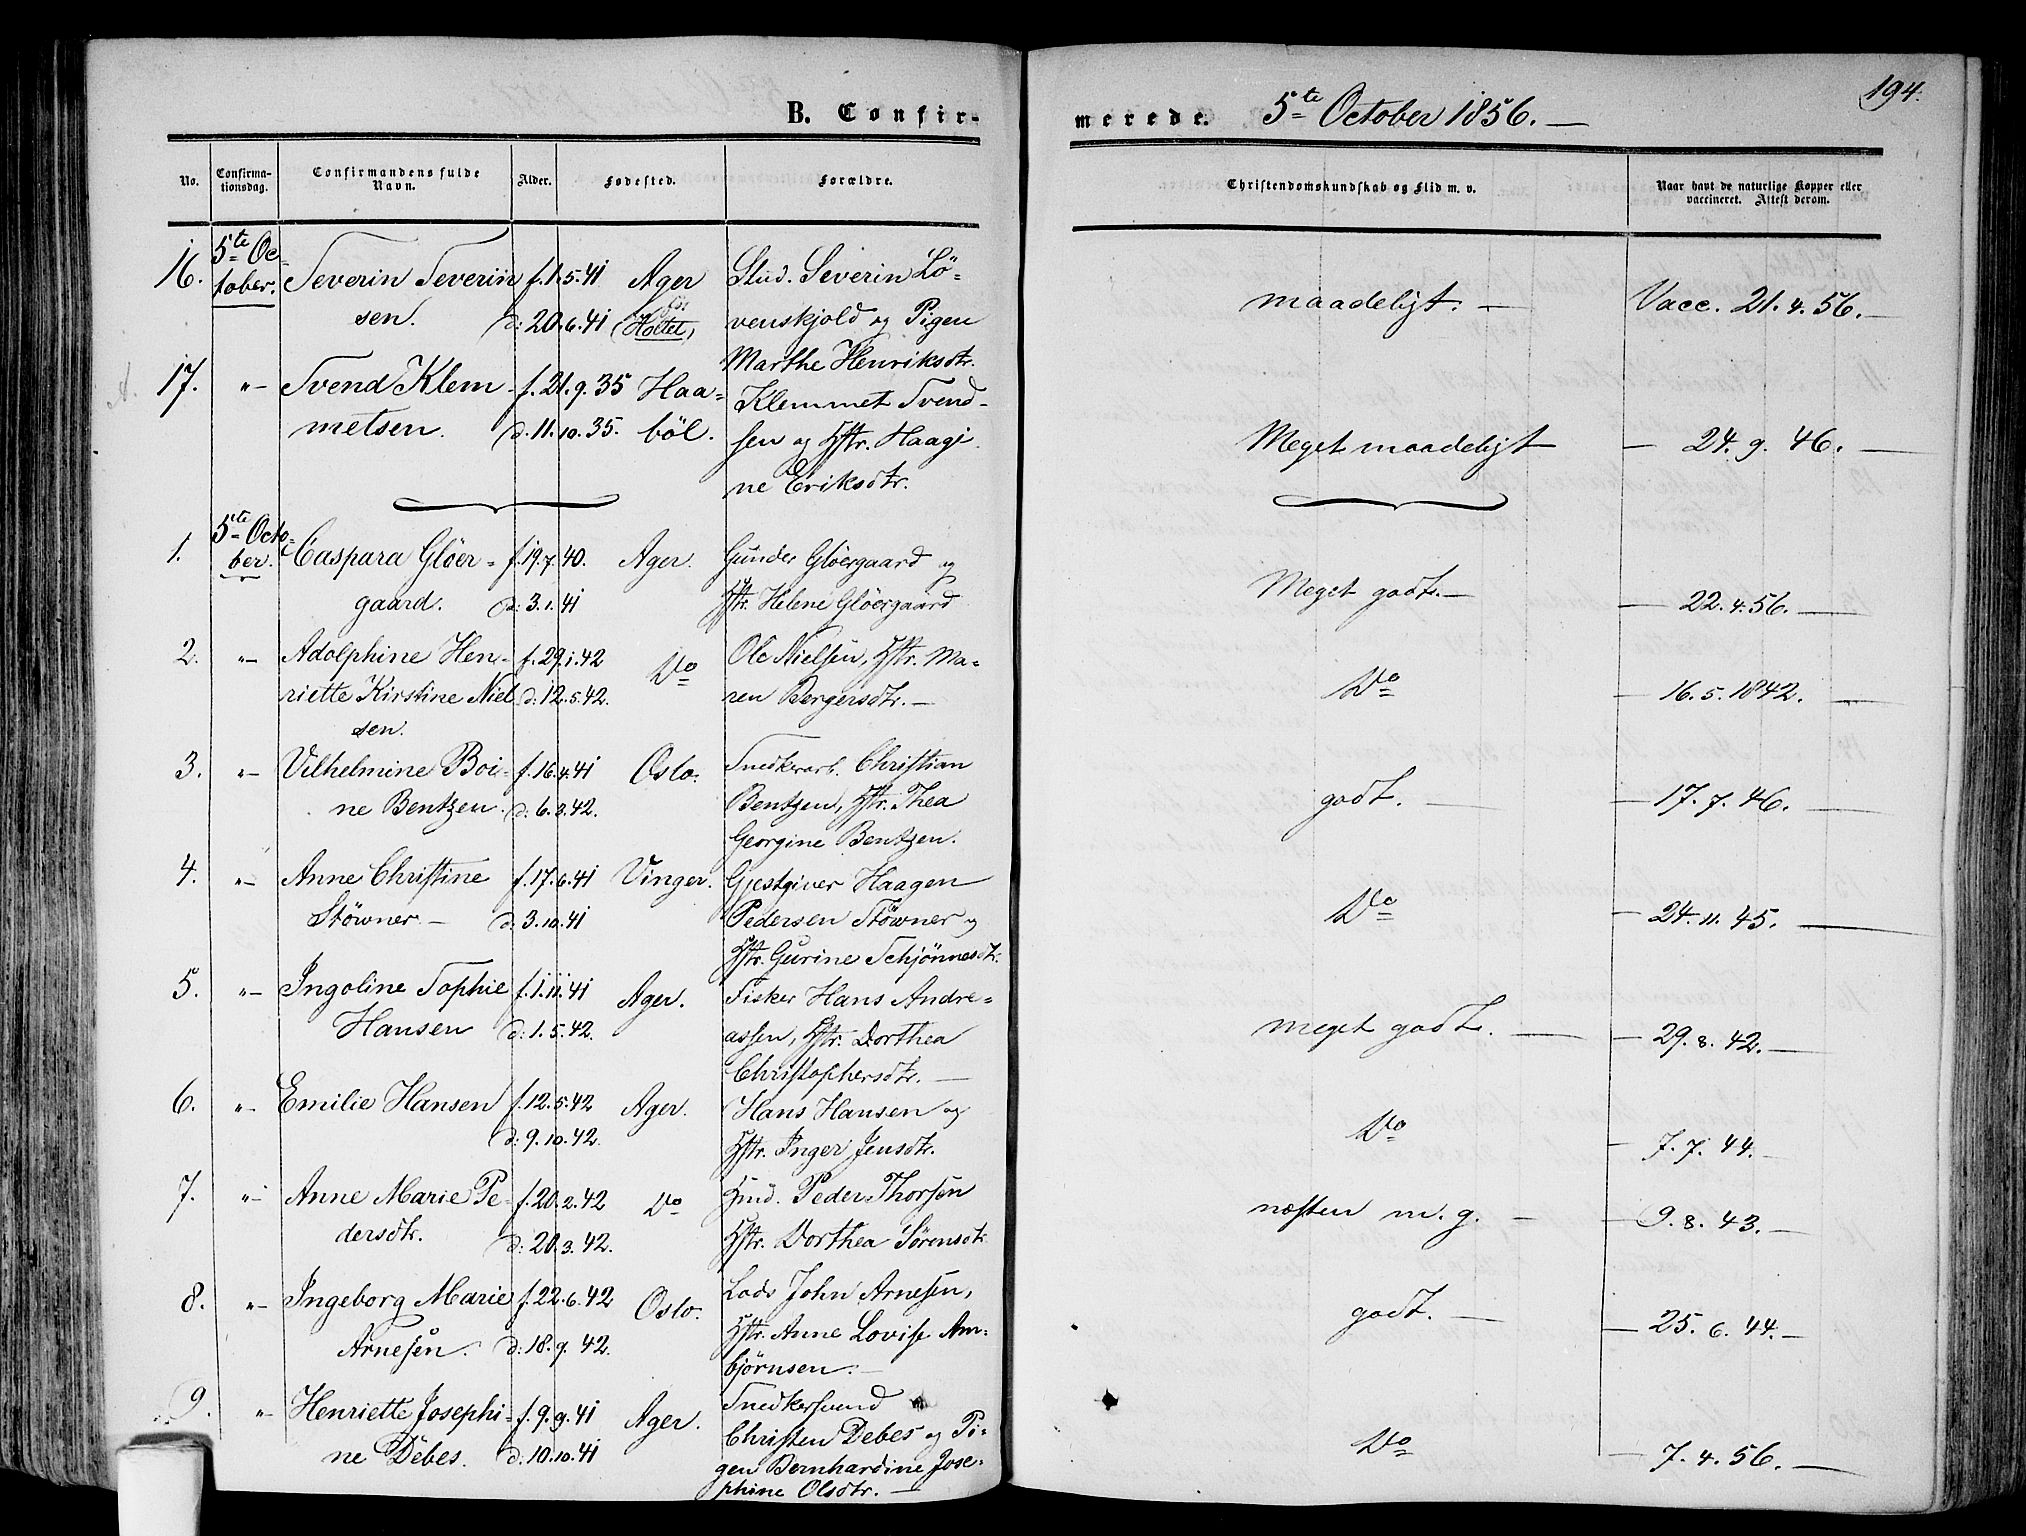 194.
B. Confirmerede. 5te October 1856. —
No. Confirmationsdag. Confirmandens fulde Navn. Alder. Fødested. Forældre. Christendomskundskab og Flid m. v. Naar havt de naturlige Kopper eller vaccineret. Attest derom.
16. 5te Oc- Severin Severin f. 1.5.41 Ager Stud. Severin Lö-
tober. sen. d: 20.6.41 Holtet, venskjold og Pigen maadeligt. — Vacc. 21.4.56. —
Marthe Henriksdtr.
17. "– Svend Klem- f. 21.9.35 Haa= Klemmet Svend-
metsen. d. 11.10.35. böl. sen og Hstr. Haagi Meget maadeligt — 24.9.46. —
ne Eriksdtr.
1. 5te Octo- Caspara Glöer- f. 19.7.40. Ager. Gunder Glöergaard og
ber. gaard. d: 3.1.41 Hstr. Helene Glöergaard Meget godt. — — 22.4.56. —
2. "– Adolphine Hen- f. 29.1.42 Do Ole Nielsen, Hstr. Ma-
riette Kirstine Niel d: 12.5.42. ren Bergersdtr. — Do — 16.5.1842. —
sen.
3. "– Vilhelmine Boi- f. 16.4.41 Oslo. Snedkerarb. Christian
ne Bentzen. d: 6.3.42. Bentzen, Hstr. Thea godt. — — 17.7.46. —
Georgine Bentzen.
4. "– Anne Christine f. 17.6.41 Vinger. Gjestgiver Haagen
Stöwner — d: 3.10.41 Pedersen Stöwner og Do — 24.11.45. —
Hstr. Gurine Schjönnesdtr.
5. "– Ingoline Sophie f. 1.11.41 Ager. Fisker Hans Andre=
Hansen d: 1.5.42. assen, Hstr. Dorthea meget godt. — — 29.8.42. —
Christophersdtr. —
6. "– Emilie Hansen f. 12.5.42 Ager. Hans Hansen og
d: 9.10.42. Hstr. Inger Jensdtr. Do — 7.7.44. —
7. "– Anne Marie Pe- f. 20.2.42 Do Hmd. Peder Thorsen
dersdtr. d: 20.3.42. Hstr. Dorthea Sörensdtr. næsten m. g. — — 9.8.43. —
8. "– Ingeborg Marie f. 22.6.42 Oslo. Lods John Arnesen,
Arnesen. d: 18.9.42. Hstr. Anne Lovise Am= godt. — — 25.6.44. —
björnsen. —
9. "– Henriette Josephi- f. 9.9.41 Ager. Snedkersvend
ne Debes. d. 10.10.41 Christen Debes og Pi- Do — 7.4.56. —
gen Bernhardine Jose=
phine Olsdtr. —